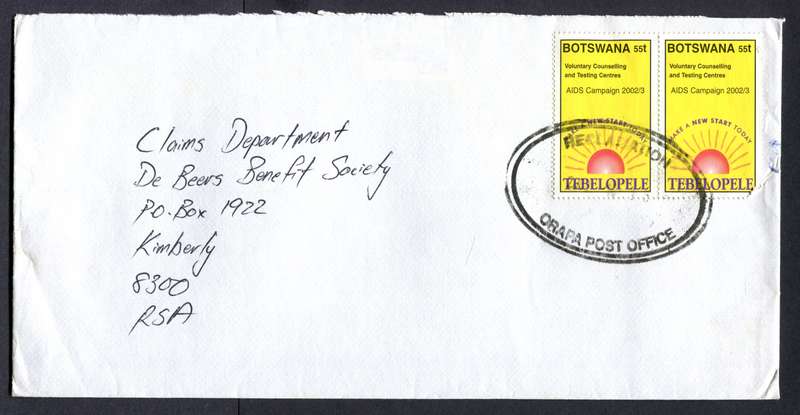 BOTSWANA 55t
Voluntary Counselling
and Testing Centres
AIDS Campaign 2002/3
A NEW START TODAY
TEBELOPELE
BOTSWANA 55t
Voluntary Counselling
and Testing Centres
AIDS Campaign 2002/3
MAKE A NEW START TODAY
TEBELOPELE
ORAPA POST OFFICE
Claims Department
De Beers Benefit Society
P.O. Box 1922
Kimberly
8300
RSA